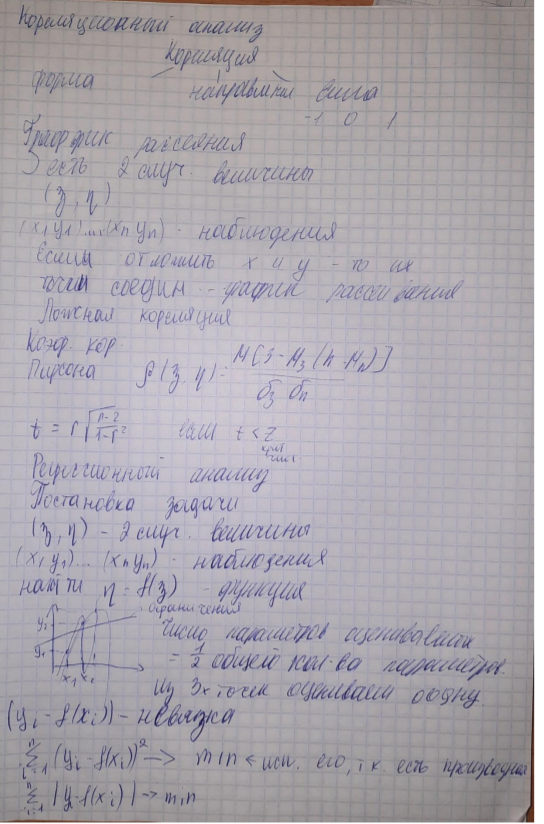 Кореляционный анализ
Кореляция
форма направление сила
-1 0 1
График рассеяния
∃ есть 2 случ. величины
(ξ, η)
(x₁y₁)...(xₙyₙ) - наблюдения
Если отложить x и y - то их
точки соедин - график рассеивания
Ложная кореляция
Коэф. кор.
Пирсона ρ(ξ, η) = M[ξ - Mξ (η - Mη)] / σξ ση
t = r √(n-2 / 1-r²) если t < Z
крит
Регрессионный анализ
Постановка задачи
(ξ, η) - 2 случ. величины
(x₁y₁)...(xₙyₙ) - наблюдения
найти η = f(ξ) - функция
ограничения
y₂
y₁
x₁ x₂
число параметров оценивавать
= 1/2 общего кол-ва параметров.
Из 3х точек оцениваем одну.
(yᵢ - f(xᵢ)) - невязка
∑ⁿᵢ₌₁ (yᵢ - f(xᵢ))² → min ← исп. его, т.к. есть производная
∑ⁿᵢ₌₁ |yᵢ - f(xᵢ)| → min